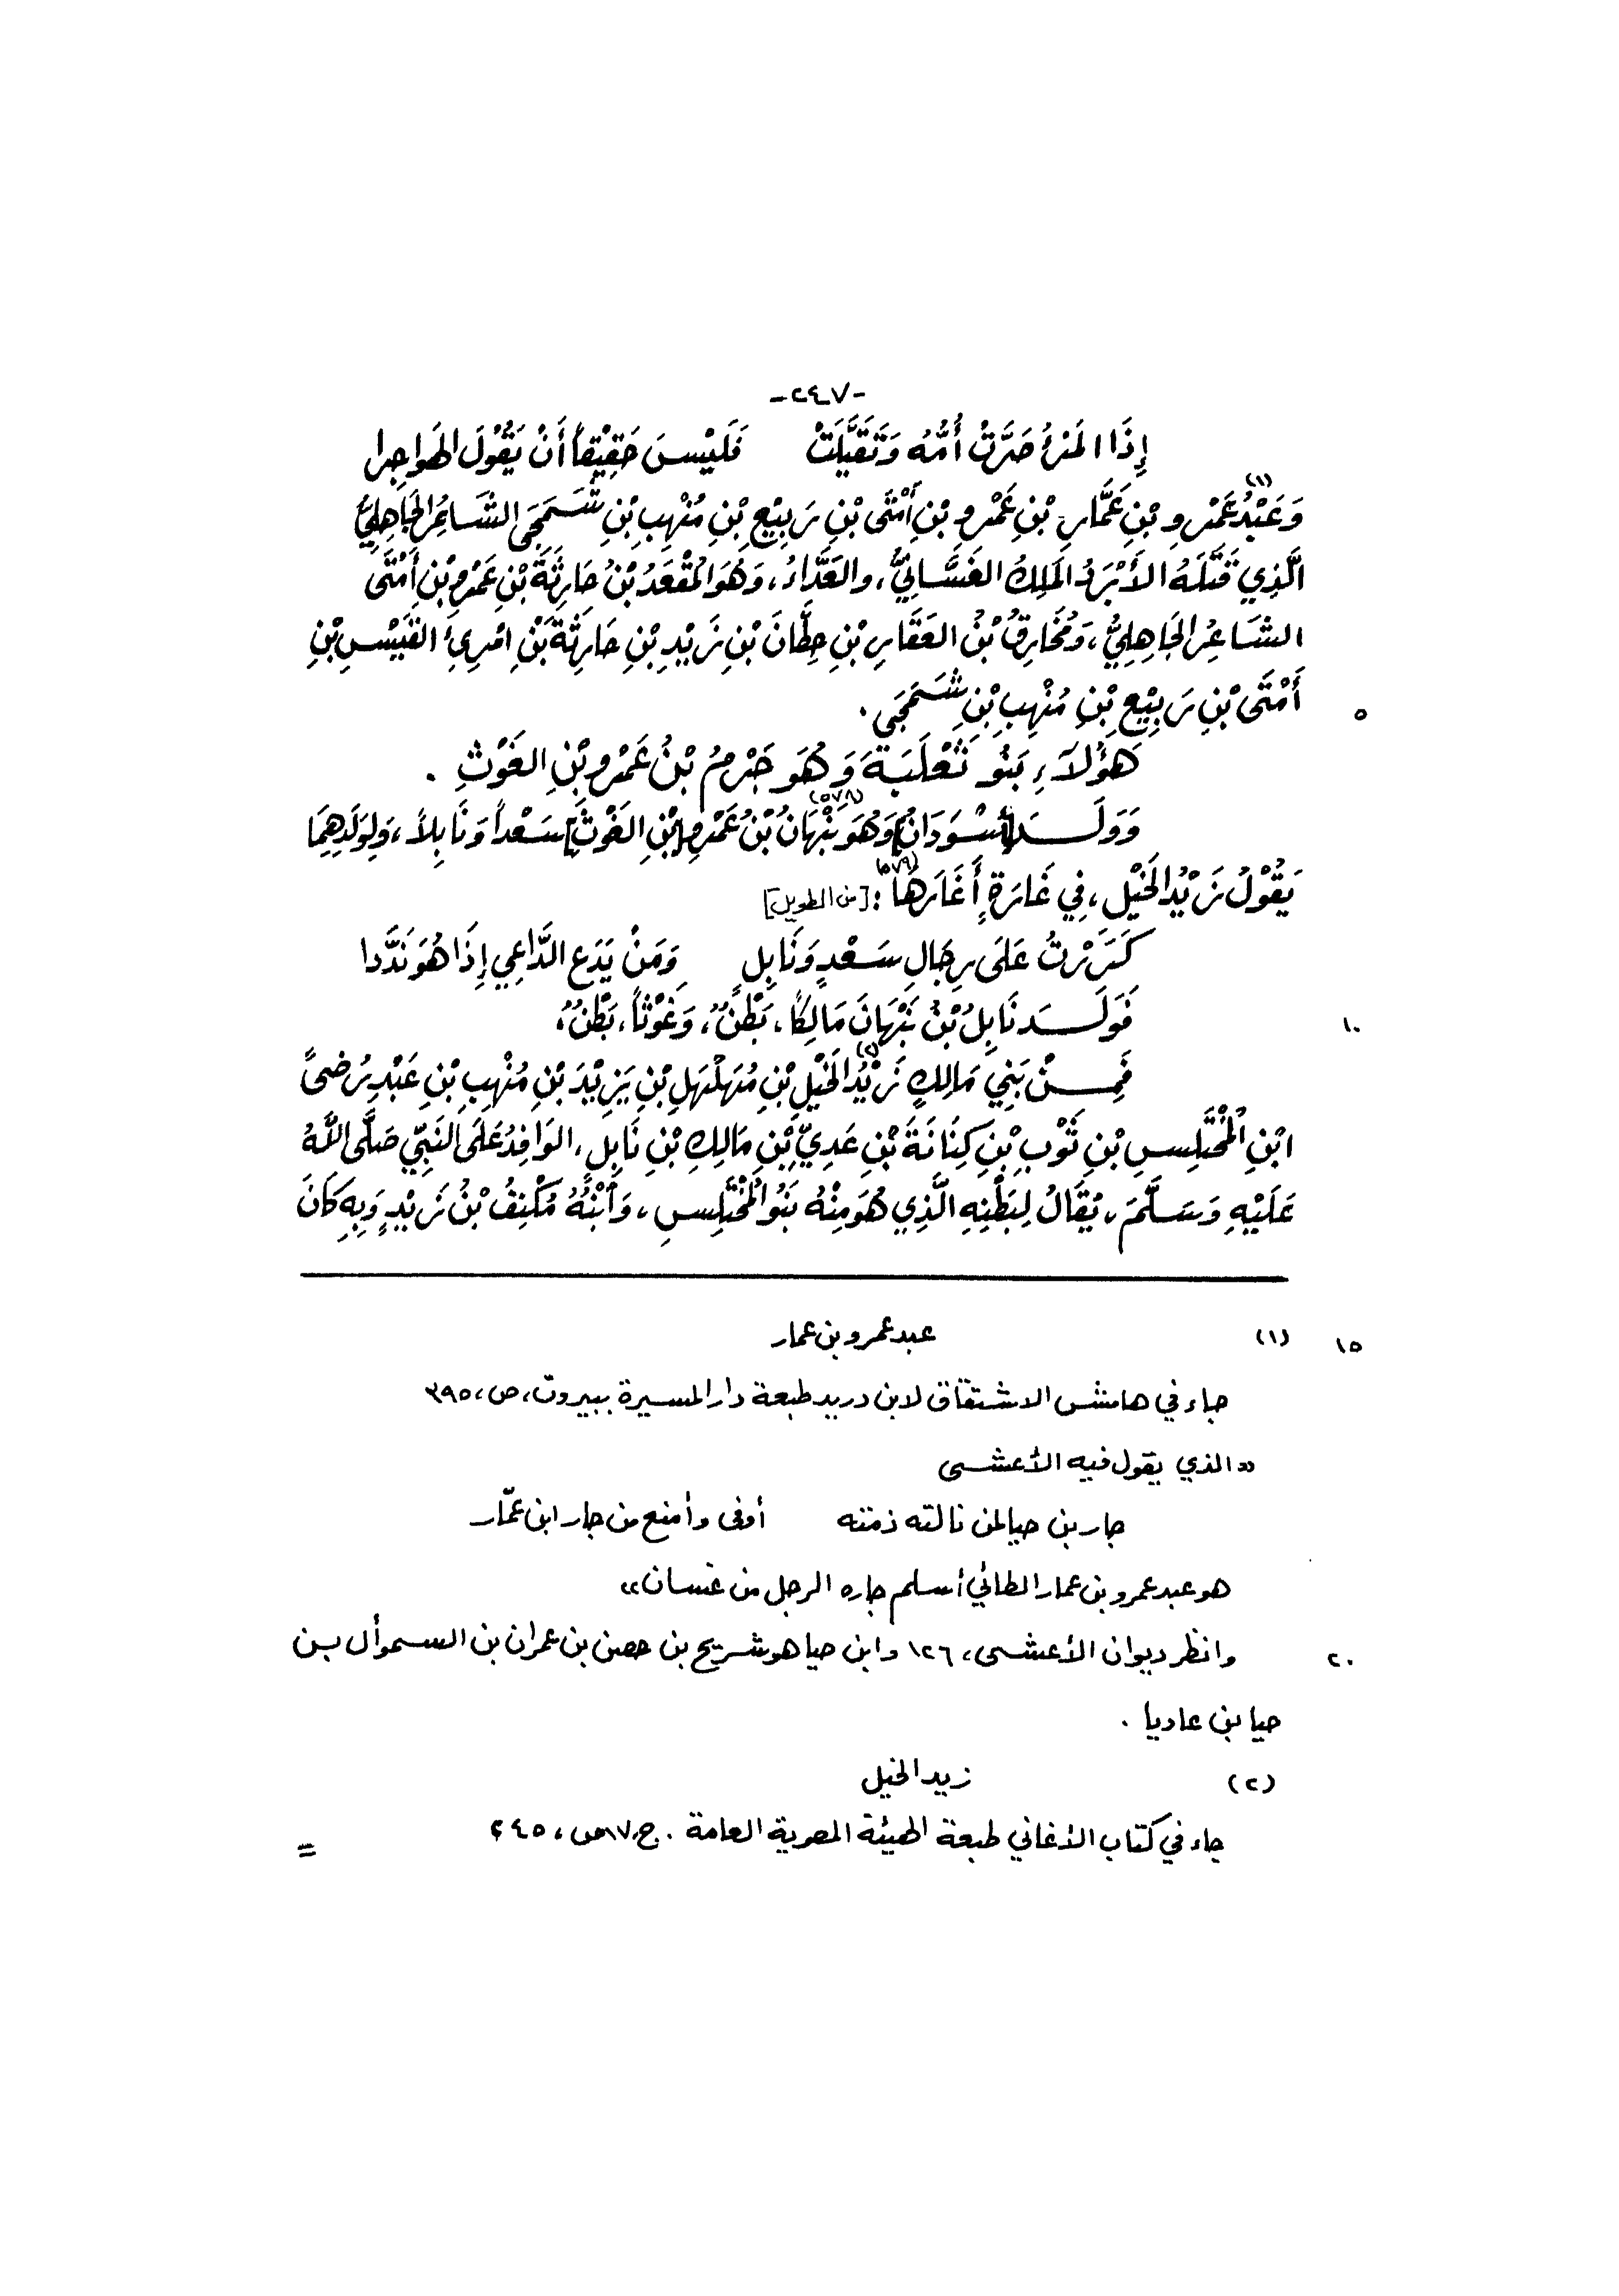 -٢٤٧-
إِذَا المَرْءُ صَرَّتْ أُمُّهُ وَتَقَيَّلَتْ فَلَيْسَ حَقِيْقاً أَنْ يَقُوْلَ الهَواجِرا
وَعَبْدُ عَمْرِو (١) بْنِ عَمَّارِ بْنِ عَمْرِو بْنِ أَمْتَى بْنِ رَبِيْعِ بْنِ مُنْهِبِ بْنِ شَمَجَى الشَّاعِرُ الجَاهِلِيُّ
الَّذِي قَتَلَهُ الأَبْرَدُ المَلِكُ الغَسَّانِيُّ، والعَدَّاءُ، وَهُوَ المُقْعَدُ بْنُ حَارِثَةَ بْنِ عَمْرِو بْنِ أَمْتَى
الشَاعِرُ الجَاهِلِيُّ، وَمُخَارِقُ بْنُ العَقَارِ بْنِ حِطَّانَ بْنِ زَيْدِ بْنِ حَارِثَةَ بْنِ امْرِئِ القَيْسِ بْنِ
أَمْتَى بْنِ رَبِيْعِ بْنِ مُنْهِبِ بْنِ شَمَجَى. ٥
هَؤُلَاءِ بَنُو ثَعْلَبَةَ وَهُوَ جَرْمُ بْنُ عَمْرِو بْنِ الغَوْثِ.
وَوَلَدَ [أَسْوَدَانُ] وَهُوَ نَبْهَانُ (٥٧٨) بْنُ عَمْرِو [بْنِ الغَوْثِ] سَعْداً وَنَابِلاً، وَلِوَلَدِهِمَا
يَقُوْلُ زَيْدُ الخَيْلِ، فِي غَارَةٍ أَغَارَهَا (٥٧٩): [من الطويل]
كَرَرْتُ عَلَى رِجَالِ سَعْدٍ وَنَابِلٍ وَمَنْ يَدَعِ الدَّاعِي إِذَا هُوَ نَدَّدا
فَوَلَدَ نَابِلُ بْنُ نَبْهَانَ مَالِكاً، بَطْنٌ، وَغَوْثاً، بَطْنٌ، ١٠
فَمِنْ بَنِي مَالِكٍ زَيْدُ الخَيْلِ (٢) بْنِ مُهَلْهِلِ بْنِ يَزِيْدَ بْنِ مُنْهِبِ بْنِ عَبْدِ رُضىً
ابْنِ المُخْتَلِسِ بْنِ ثَوْبِ بْنِ كِنَانَةَ بْنِ عَدِيِّ بْنِ مَالِكِ بْنِ نَابِلٍ، الوَافِدُ عَلَى النَبِيِّ صَلَّى اللَّهُ
عَلَيْهِ وَسَلَّمَ، يُقَالُ لِبَطْنِهِ الَّذِي هُوَ مِنْهُ بَنُو المُخْتَلِسِ، وَابْنُهُ مُكْنِفُ بْنُ زَيْدٍ وَبِهِ كَانَ
(١) عبد عمرو بن عمار ١٥
جاء في هامش الاشتقاق لابن دريد طبعة دار المسيرة ببيروت، ص، ٣٩٥
«الذي يقول فيه الأعشى
جار بن حيا لمن نالته ذمته أوفى وأمنع من جار ابن عمّار
هو عبد عمرو بن عمار الطائي أسلم جاره الرجل من غسان»
وانظر ديوان الأعشى، ١٢٦ وابن حيا هو شريح بن حصن بن عمران بن السموأل بن ٢٠
حيا بن عاديا.
(٢) زيد الخيل
جاء في كتاب الأغاني طبعة الهيئة المصرية العامة. ج، ١٧ ص، ٢٤٥ =